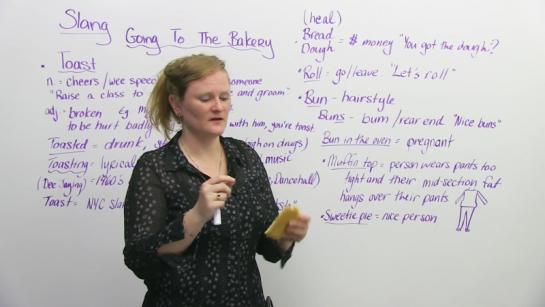 Slang
Going To The Bakery
• Toast
n = cheers / wee speec omeone
"Raise a class to and groom"
adj - broken eg m
to be hurt badly with him, you're toast
Toasted = drunk, gh on drugs)
Toasting = lyrical music
(Dee Jaying) = 1960's Dancehall)
Toast = NYC slan
(heal)
Bread
Dough = $ money "You got the dough?
• Roll = go/leave "Let's roll"
• Bun - hairstyle
Buns - bum/rear end "Nice buns"
Bun in the oven = pregnant
• Muffin top = person wears pants too
tight and their mid-section fat
hangs over their pants
• Sweetie pie = nice person